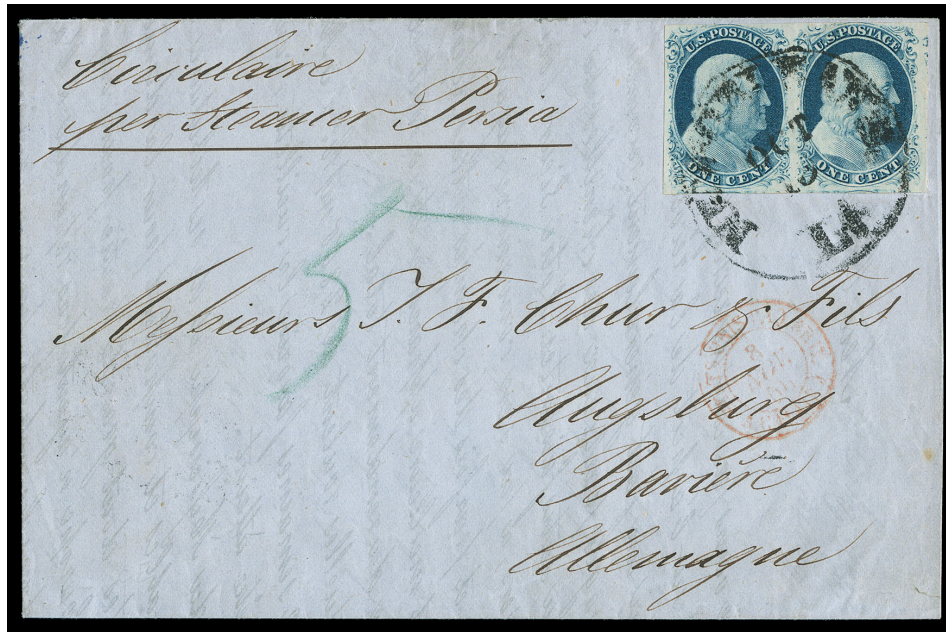 Circulaire
per Steamer Persia
U.S. POSTAGE
ONE CENT
U.S. POSTAGE
ONE CENT
NEW
OCT
LA
5
Messieurs J. F. Chur & Fils
Augsburg
Bavière
Allemagne